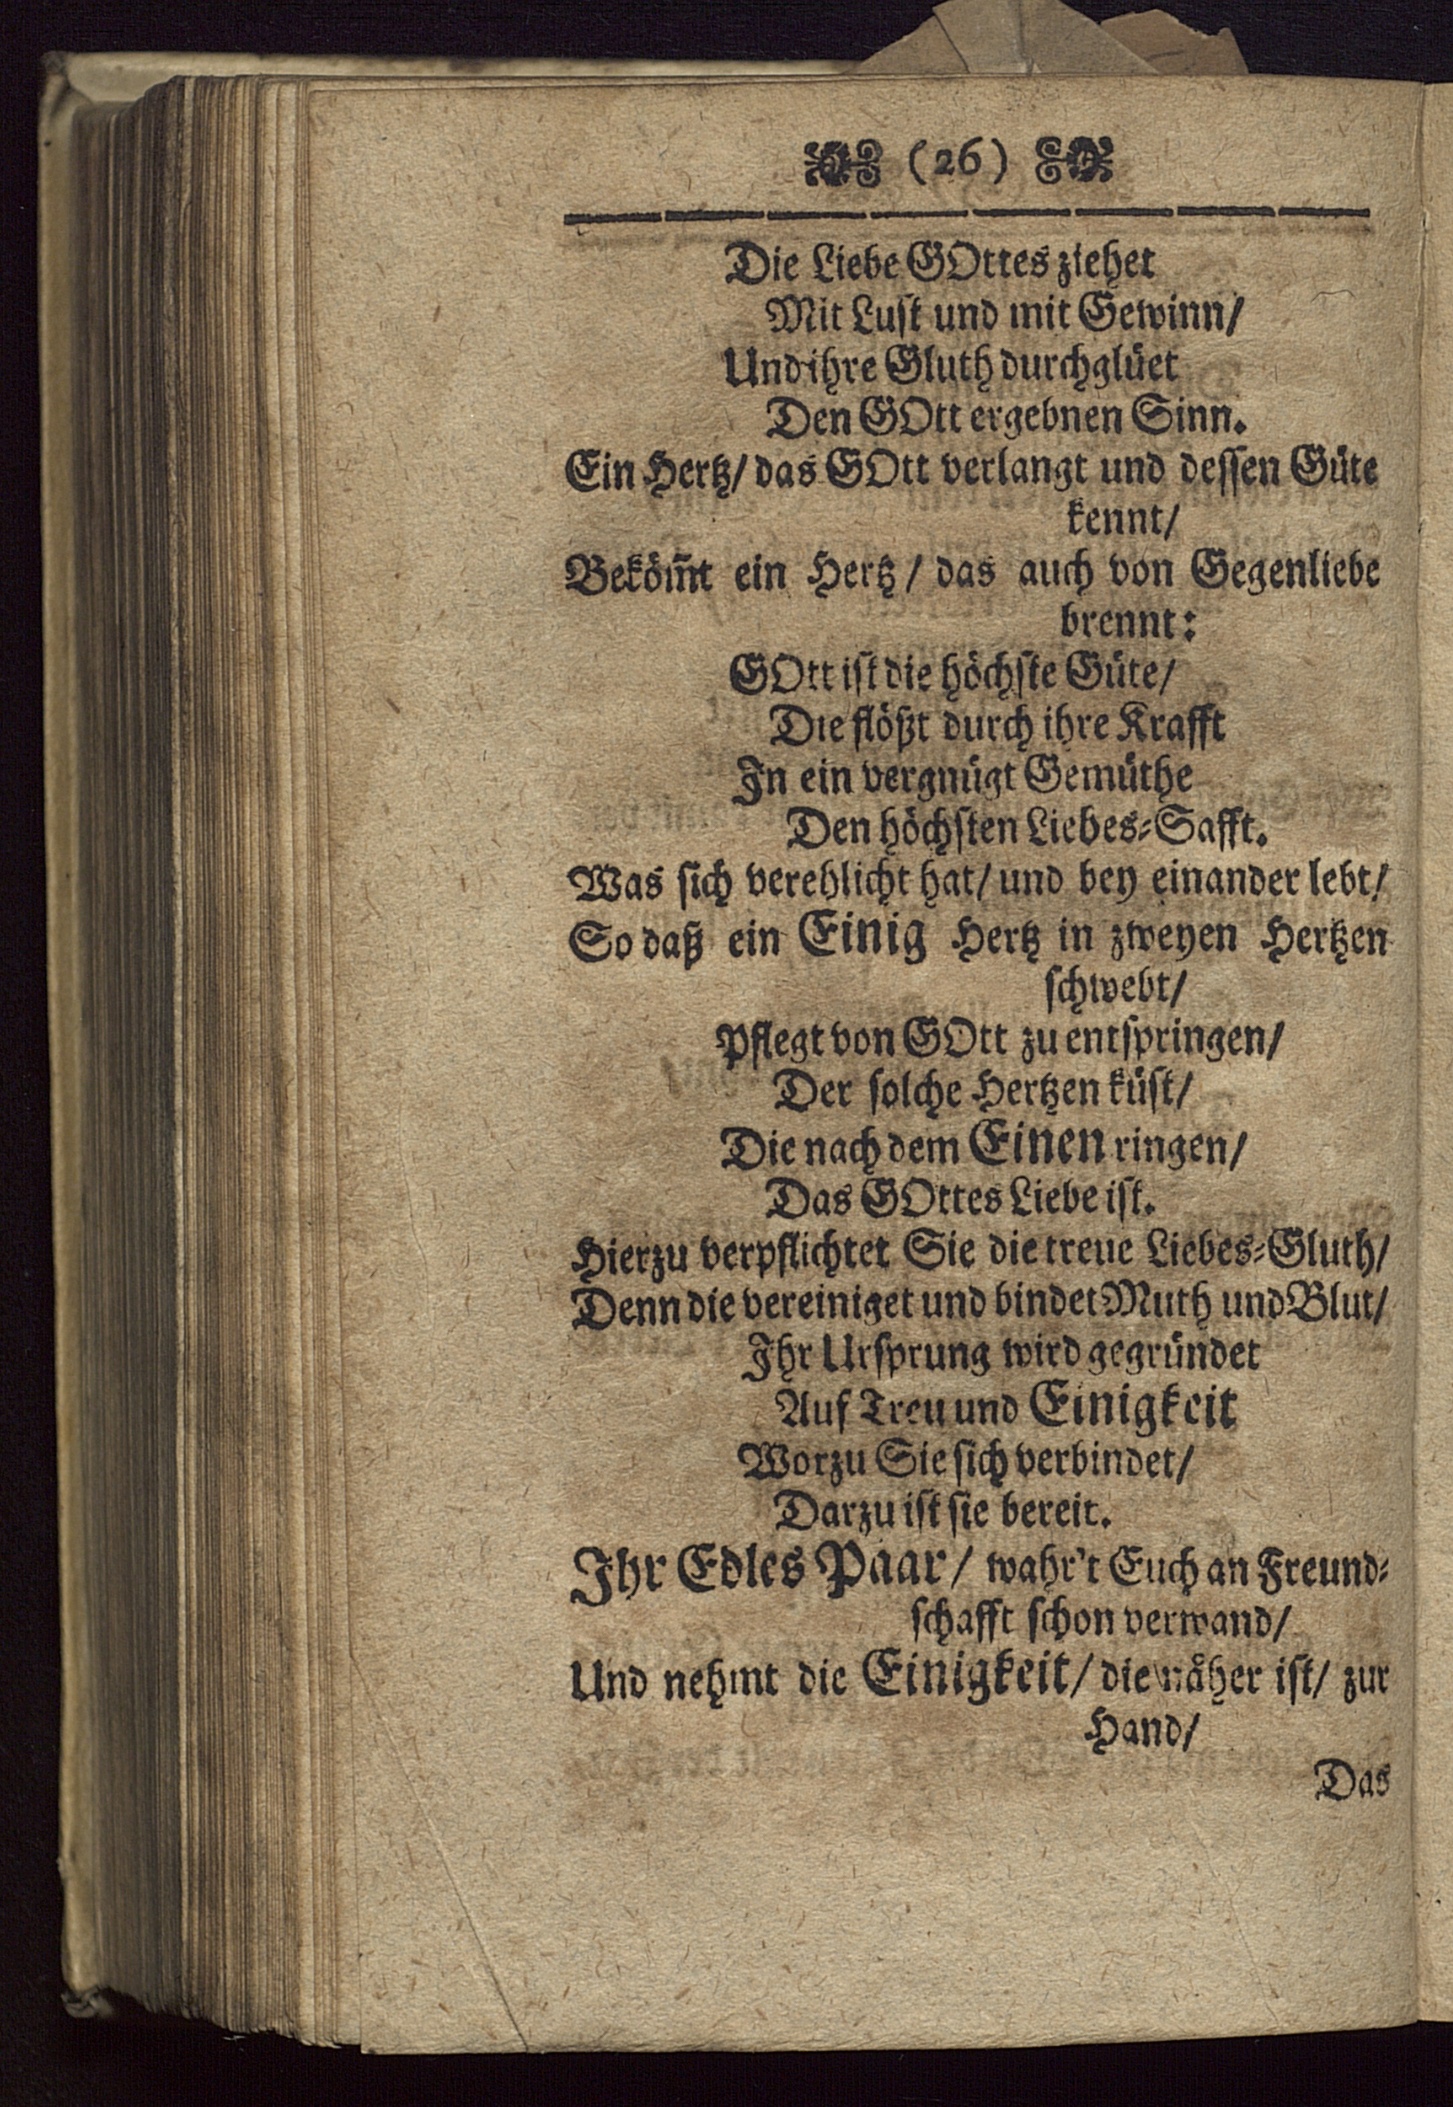 (26)
Die Liebe GOttes ziehet
Mit Lust und mit Gewinn/
Und ihre Gluth durchglüet
Den GOtt ergebnen Sinn.
Ein Hertz/ das GOtt verlangt und dessen Güte
kennt/
Beköm̃t ein Hertz/ das auch von Gegenliebe
brennt:
GOtt ist die höchste Güte/
Die flößt durch ihre Krafft
In ein vergnügt Gemüthe
Den höchsten Liebes-Safft.
Was sich verehlicht hat/ und bey einander lebt/
So daß ein Einig Hertz in zweyen Hertzen
schwebt/
Pflegt von GOtt zu entspringen/
Der solche Hertzen küst/
Die nach dem Einen ringen/
Das GOttes Liebe ist.
Hierzu verpflichtet Sie die treue Liebes-Gluth/
Denn die vereiniget und bindet Muth und Blut/
Ihr Ursprung wird gegründet
Auf Treu und Einigkeit
Worzu Sie sich verbindet/
Darzu ist sie bereit.
Ihr Edles Paar/ wahr't Euch an Freund-
schafft schon verwand/
Und nehmt die Einigkeit/ die näher ist/ zur
Hand/
Das